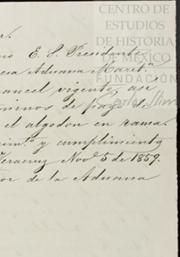 CENTRO DE
ESTUDIOS
DE HISTORIA
DE MÉXICO
FUNDACIÓN
Carlos Slim
E. S. Presidente
Aduana Marít.
arancel vigente, así
pago de
el algodon en rama.
y cumplimiento
Veracruz Nov. 5 de 1859.
de la Aduana